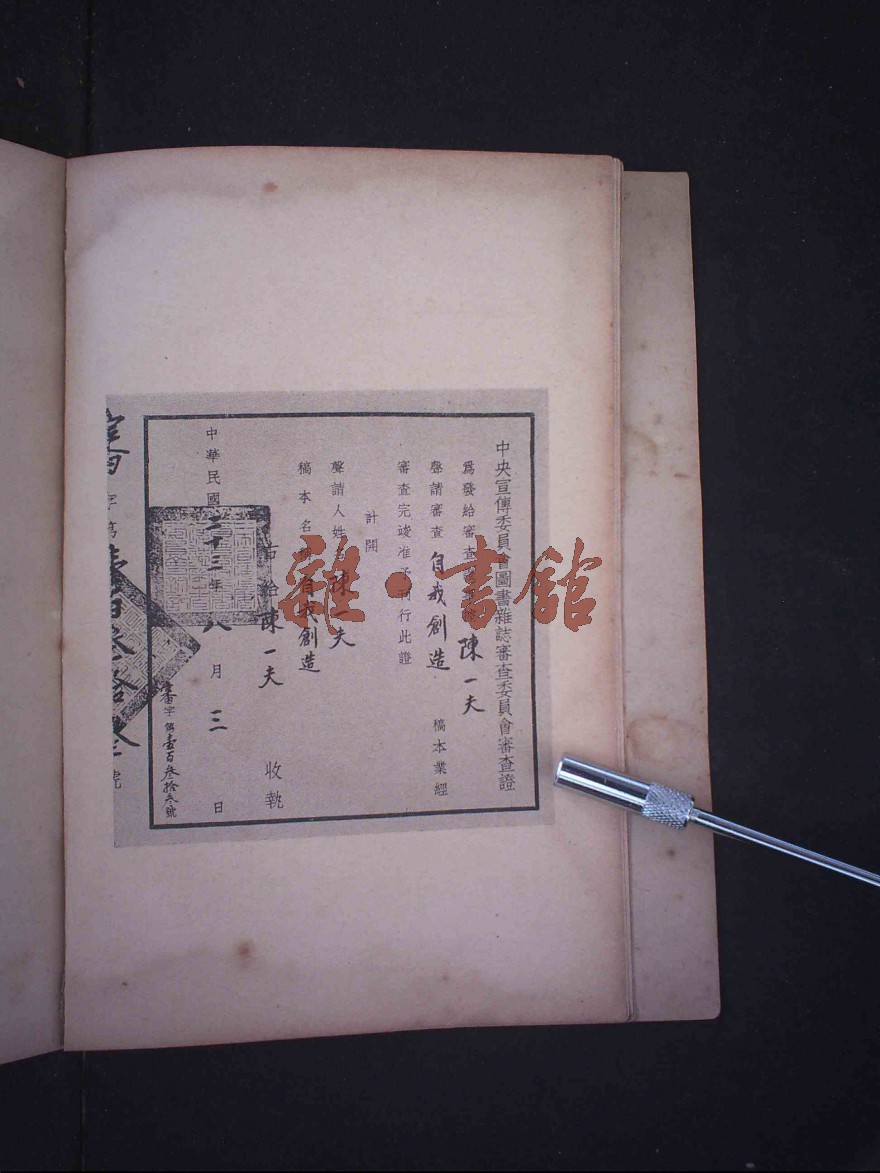 中央宣傳委員會圖書雜誌審查委員會審查證
爲發給審查證事據陳一夫
聲請審查自我創造稿本業經
審查完竣准予刊行此證
計開
聲請人姓名陳一夫
稿本名稱自我創造
右給陳一夫收執
中華民國二十三年八月三日
審字第壹百叁拾叁號
審字第壹百叁拾叁號
雜·書館